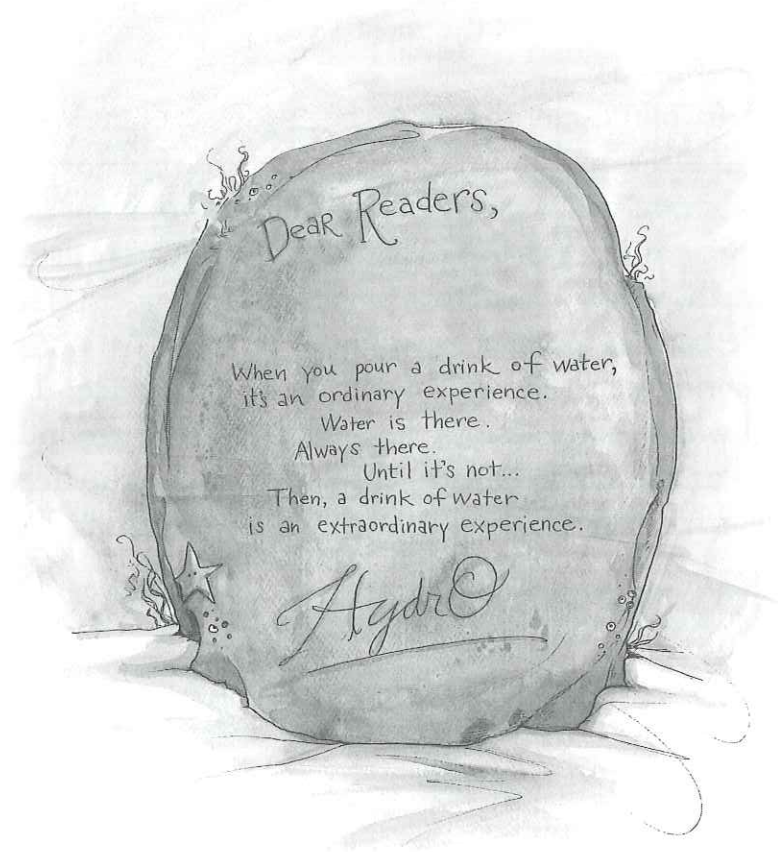 Dear Readers,
When you pour a drink of water,
it's an ordinary experience.
Water is there.
Always there.
Until it's not...
Then, a drink of water
is an extraordinary experience.
HydrO